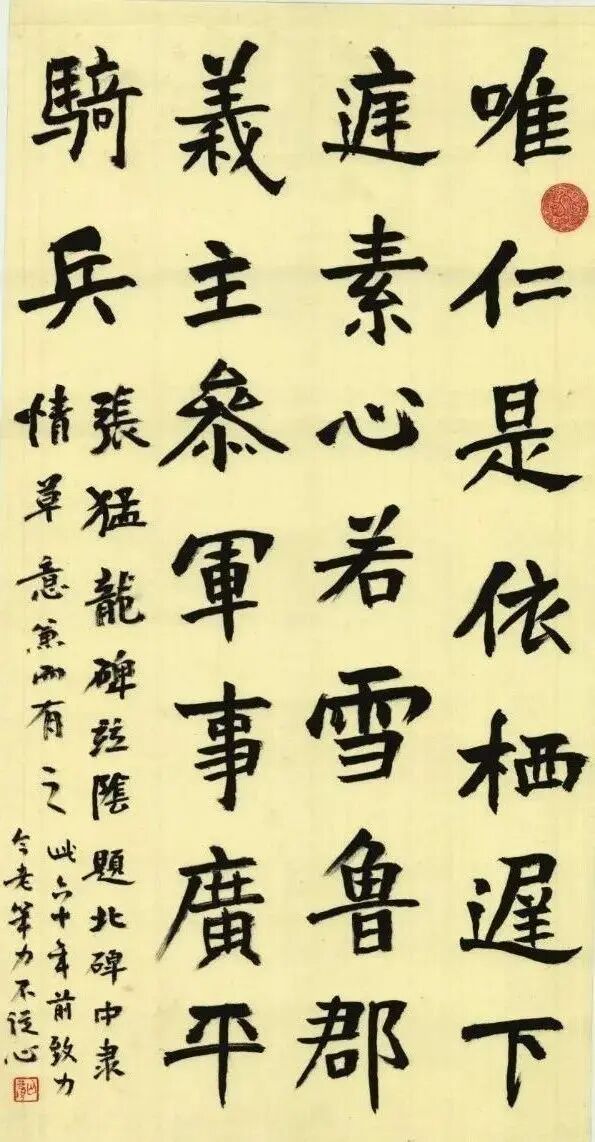 唯仁是依栖遲下
庭素心若雪魯郡
義主叅軍事廣平
騎兵
張猛龍碑竝陰題北碑中隶
情草意兼而有之
此六十年前致力
今老筆力不從心